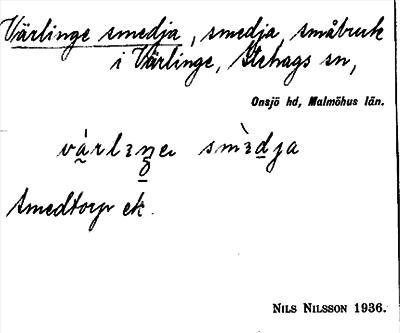 Värlinge smedja, smedja, småbruk
i Värlinge, Stehags sn,
Onsjö hd, Malmöhus län.
smedja
Smedtorp ek.
NILS NILSSON 1936.